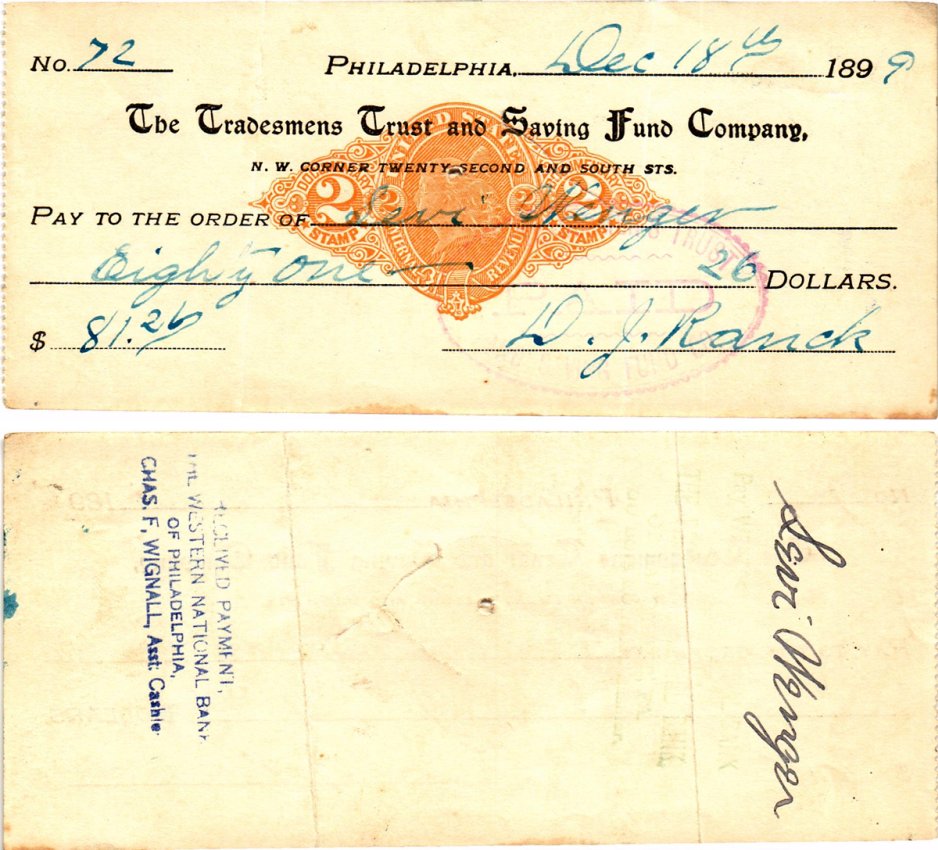 No. 72 PHILADELPHIA, Dec 18th 1899
The Tradesmens Trust and Saving Fund Company,
N. W. CORNER TWENTY SECOND AND SOUTH STS.
UNITED STATES
2 2 2 2
STAMP STAMP
INTERNAL REVENUE
PAY TO THE ORDER OF Levi Wenger
Eighty one 26 DOLLARS.
$ 81.26 D. J. Ranck
TRUST
RECEIVED PAYMENT,
THE WESTERN NATIONAL BANK
OF PHILADELPHIA,
CHAS. F. WIGNALL, Asst. Cashie
Levi Wenger